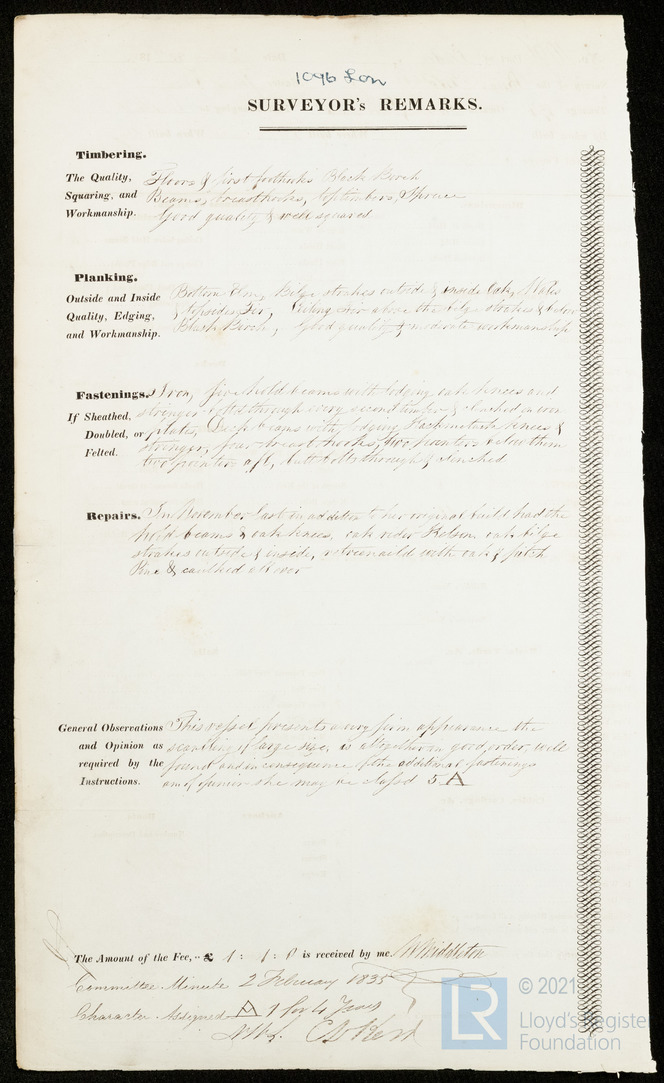 1096 Lon
SURVEYOR's REMARKS.
Timbering.
The Quality, Squaring, and Workmanship.
Floors & first foothooks Black Birch
Beams, breasthooks, toptimbers, Spruce
Good quality & well squared
Planking.
Outside and Inside Quality, Edging, and Workmanship.
Bottom Elm, Bilge strakes outside & inside Oak, Wales
& topsides Fir, Ceiling Fir above the bilge strakes & below
Black Birch, Good quality & moderate workmanship
Fastenings.
If Sheathed, Doubled, or Felted.
Iron, five hold beams with lodging oak knees and
stringer bolts through every second timber & clinched on iron
plates, Deck beams with lodging Hackmatack knees &
stringer, four breasthooks, two pointers below them
two pointers aft, butt bolts through & clinched
Repairs.
In November last in addition to her original build had the
hold beams & oak knees, oak rider Kelson, oak bilge
strakes outside & inside, retreenaild with oak & pitch
Pine & caulked all over
General Observations and Opinion as required by the Instructions.
This vessel presents a very firm appearance the
scantling of large size, is altogether in good order, well
found and in consequence of the additional fastenings
am of opinion she may be classd 5 A
The Amount of the Fee, £ 1 : 1 : 0 is received by me. W Middleton
Committee Minute 2 February 1835
Character Assigned A 1 for 4 Years
LR
© 2021
Lloyd's Register
Foundation